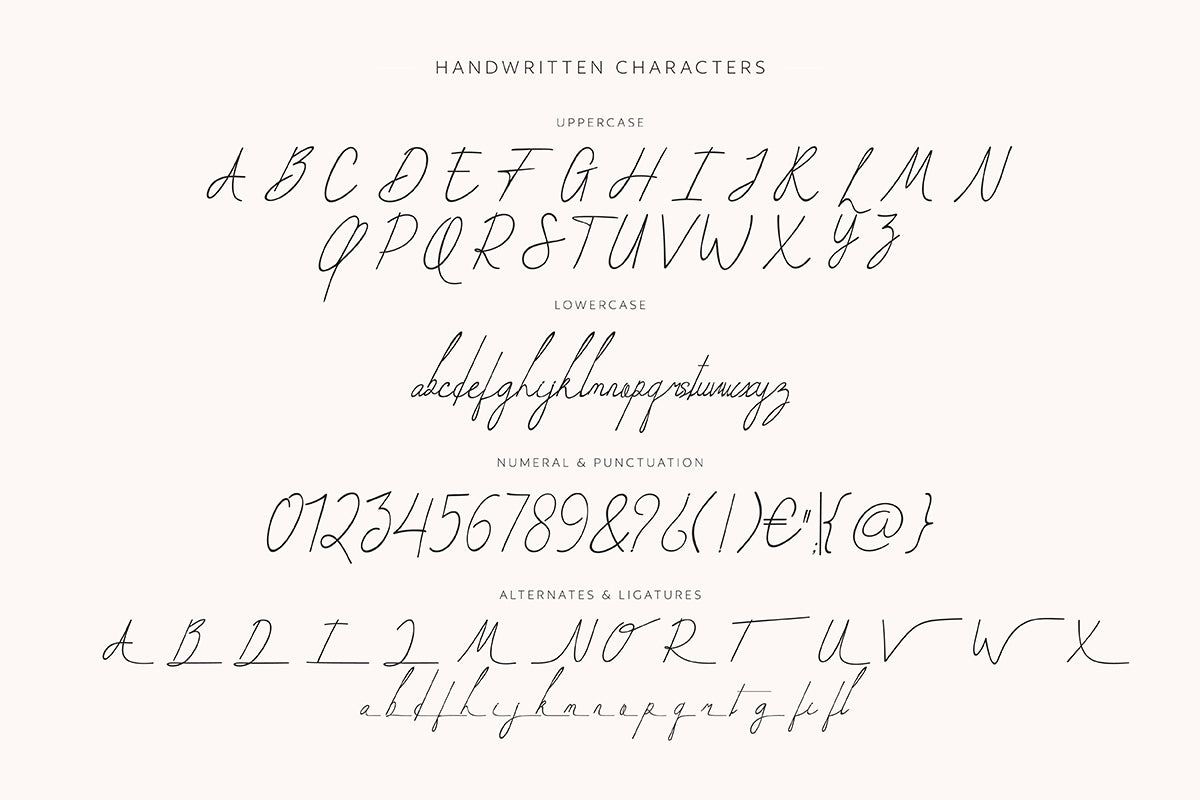 HANDWRITTEN CHARACTERS
UPPERCASE
A B C D E F G H I J K L M N
O P Q R S T U V W X Y Z
LOWERCASE
abcdefghijklmnopqrstuvwxyz
NUMERAL & PUNCTUATION
0123456789&?¿(!)€";|{@}
ALTERNATES & LIGATURES
A B D I J M N O R T U V W X
a b d f h i j k m n o p q r t g fi fl